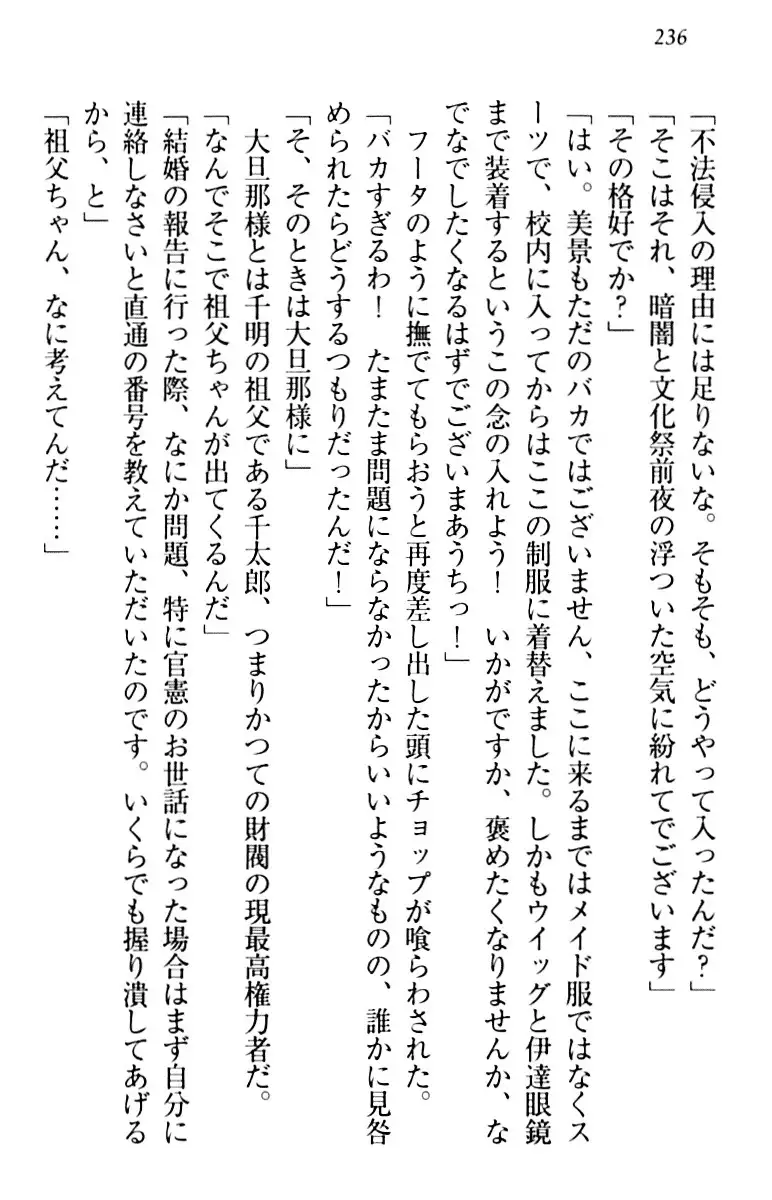 236
「不法侵入の理由には足りないな。そもそも、どうやって入ったんだ？」
「そこはそれ、暗闇と文化祭前夜の浮ついた空気に紛れてでございます」
「その格好でか？」
「はい。美景もただのバカではございません、ここに来るまではメイド服ではなくス
ーツで、校内に入ってからはここの制服に着替えました。しかもウイッグと伊達眼鏡
まで装着するというこの念の入れよう！　いかがですか、褒めたくなりませんか、な
でなでしたくなるはずでございまあうちっ！」
　フータのように撫でてもらおうと再度差し出した頭にチョップが喰らわされた。
「バカすぎるわ！　たまたま問題にならなかったからいいようなものの、誰かに見咎
められたらどうするつもりだったんだ！」
「そ、そのときは大旦那様に」
　大旦那様とは千明の祖父である千太郎、つまりかつての財閥の現最高権力者だ。
「なんでそこで祖父ちゃんが出てくるんだ」
「結婚の報告に行った際、なにか問題、特に官憲のお世話になった場合はまず自分に
連絡しなさいと直通の番号を教えていただいたのです。いくらでも握り潰してあげる
から、と」
「祖父ちゃん、なに考えてんだ……」